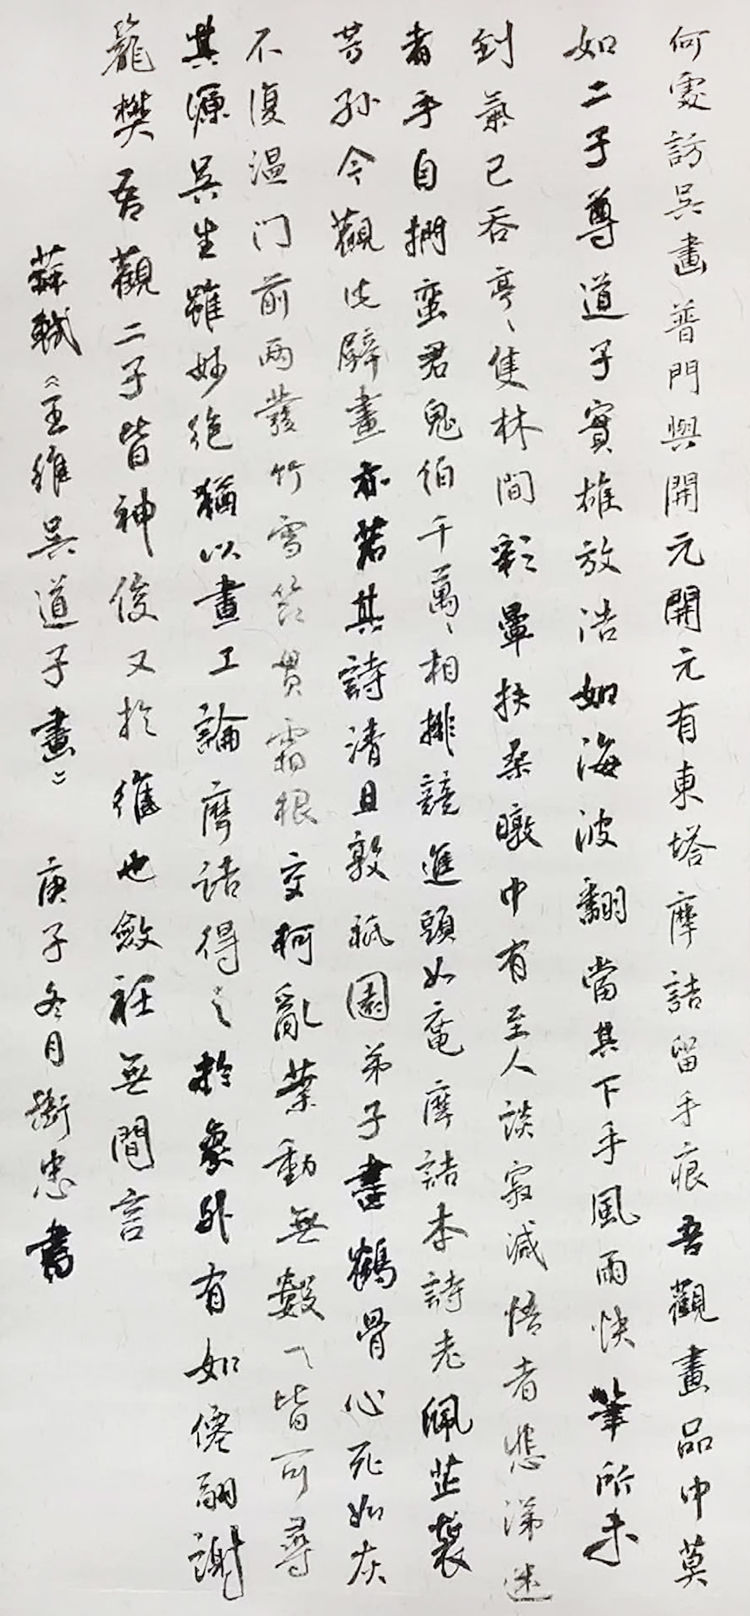 何處訪吳畫普門與開元開元有東塔摩詰留手痕吾觀畫品中莫
如二子尊道子實雄放浩如海波翻當其下手風雨快筆所未
到氣已吞亭、隻林間彩暈扶桑暾中有至人談寂滅悟者悲涕迷
者手自捫蛮君鬼伯千萬、相排競進頭如黿摩詰本詩老佩芷襲
芳孙今觀此壁畫亦若其詩清且敦祇園弟子盡鶴骨心死如灰
不復温门前兩叢竹雪節貫霜根交柯亂葉動無數一皆可尋
其源吳生雖妙絕猶以畫工論摩詰得之於象外有如僊翮謝
籠樊吾觀二子皆神俊又於維也斂衽無間言
蘇軾《王維吳道子畫》 庚子冬月忠書